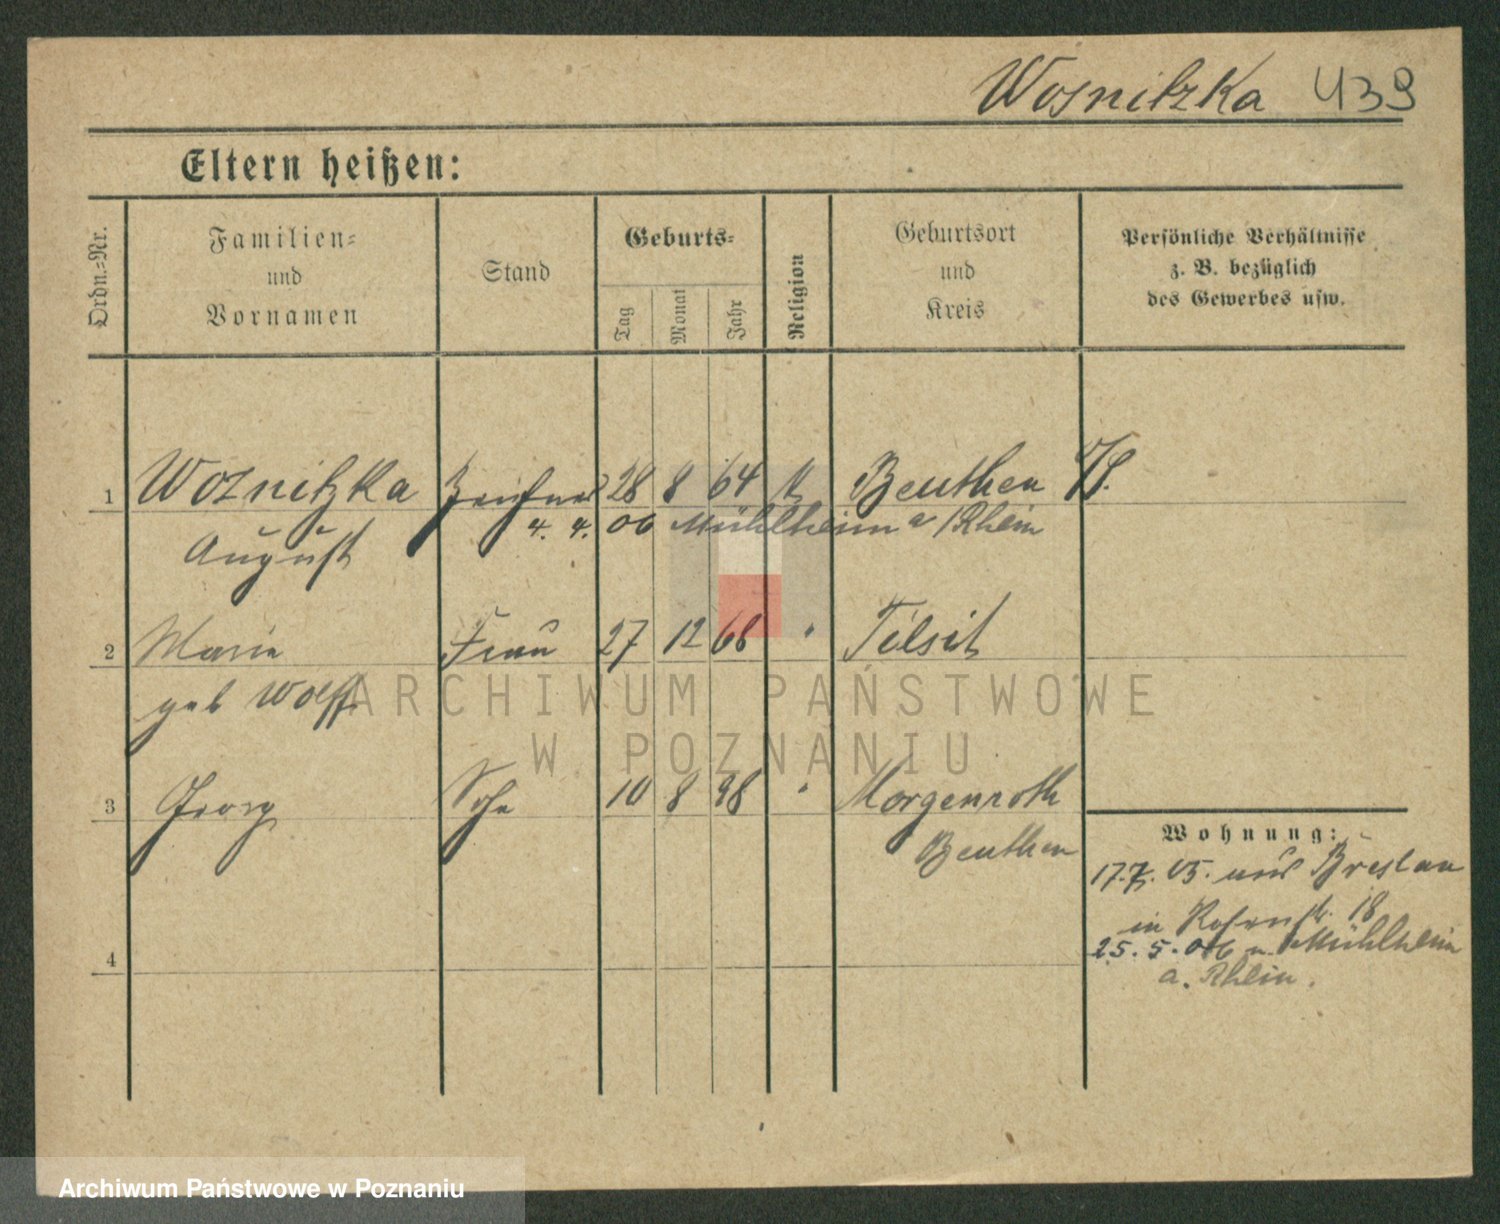 Wosnitzka 439
Eltern heißen:
Ordn.-Nr.
Familien-
und
Vornamen
Stand
Geburts-
Tag
Monat
Jahr
Religion
Geburtsort
und
Kreis
Persönliche Verhältnisse
z. B. bezüglich
des Gewerbes usw.
1 Woznitzka 28 8 64 k Beuthen O/S.
August
4. 4. 06 Mühlheim a/Rhein
2 Marie Frau 27 12 68 " Tilsit
geb Wolff
3 Georg Sohn 10 8 98 " Morgenroth
Beuthen
4
Wohnung:
17.7.05. aus Breslau
in Rosenstr. 18
25.5.06 n. Mühlheim
a. Rhein.
ARCHIWUM PAŃSTWOWE
W POZNANIU
Archiwum Państwowe w Poznaniu